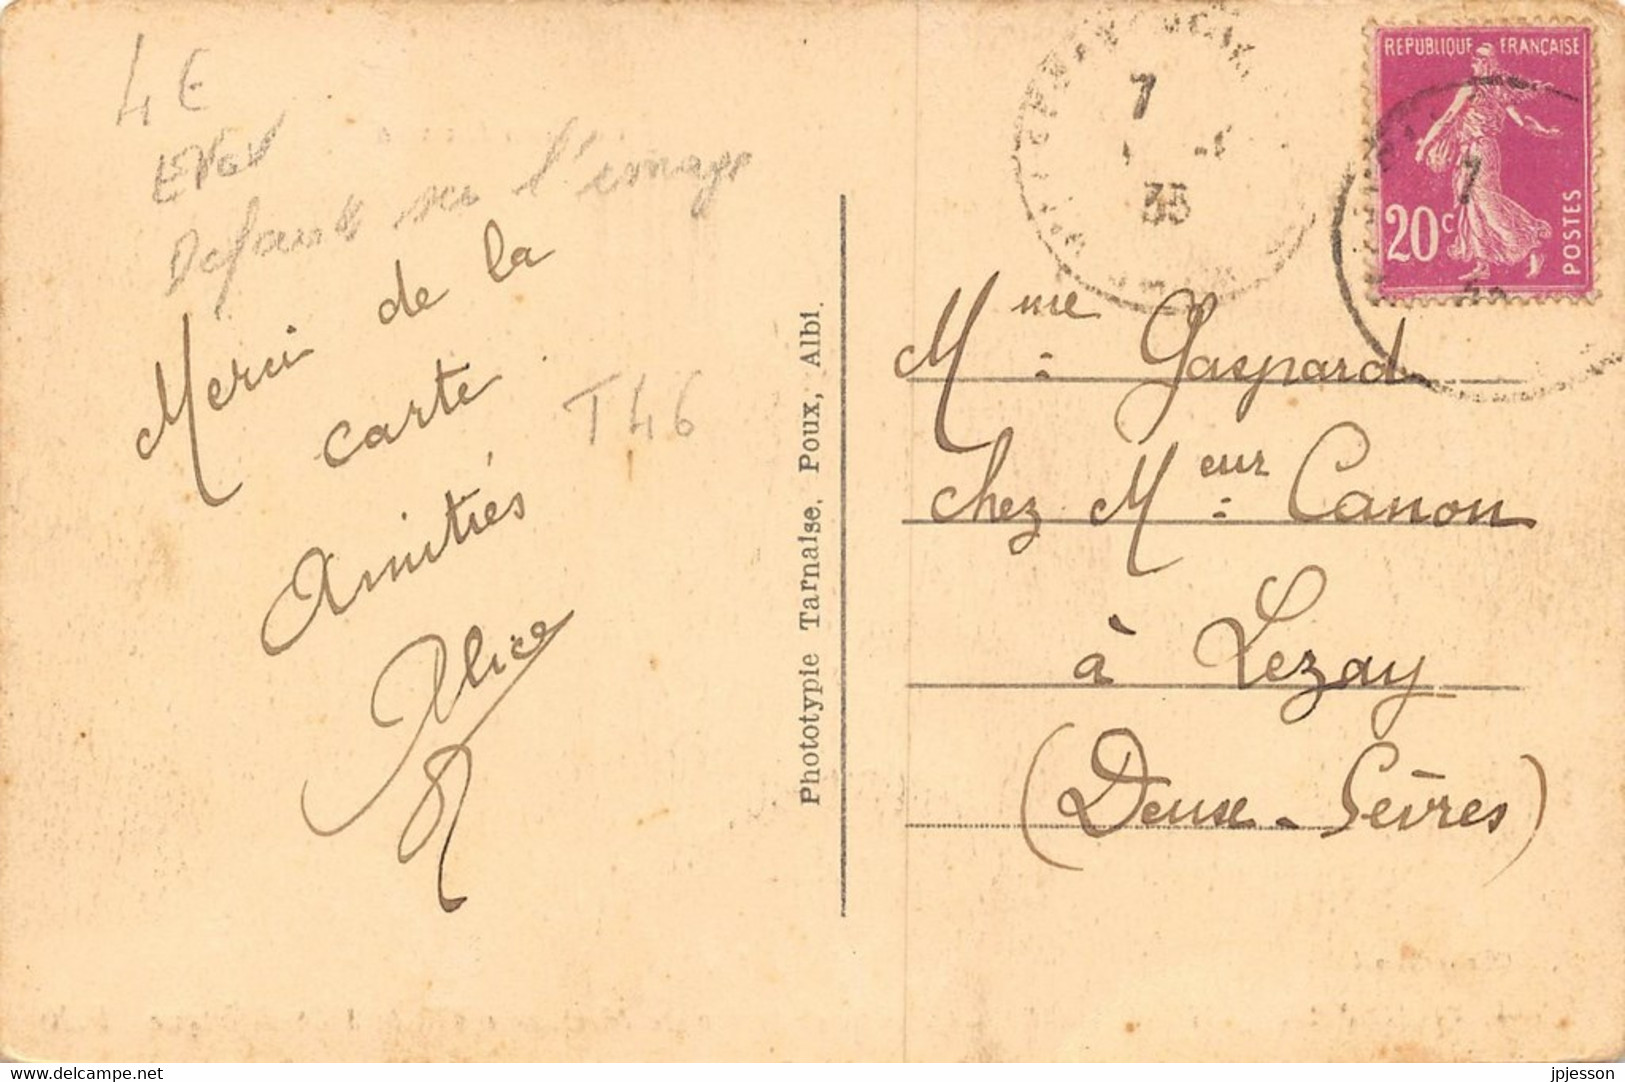 4 €
Defauts sur l'image
Merci de la
carte.
Amitiés
Alice
T46
Phototypie Tarnaise. Poux, Albi.
7
35
REPUBLIQUE FRANÇAISE
20c
POSTES
7
Mme Gaspard
chez Meur Canon
à Lezay
(Deux-Sèvres)
www.delcampe.net
jpjesson